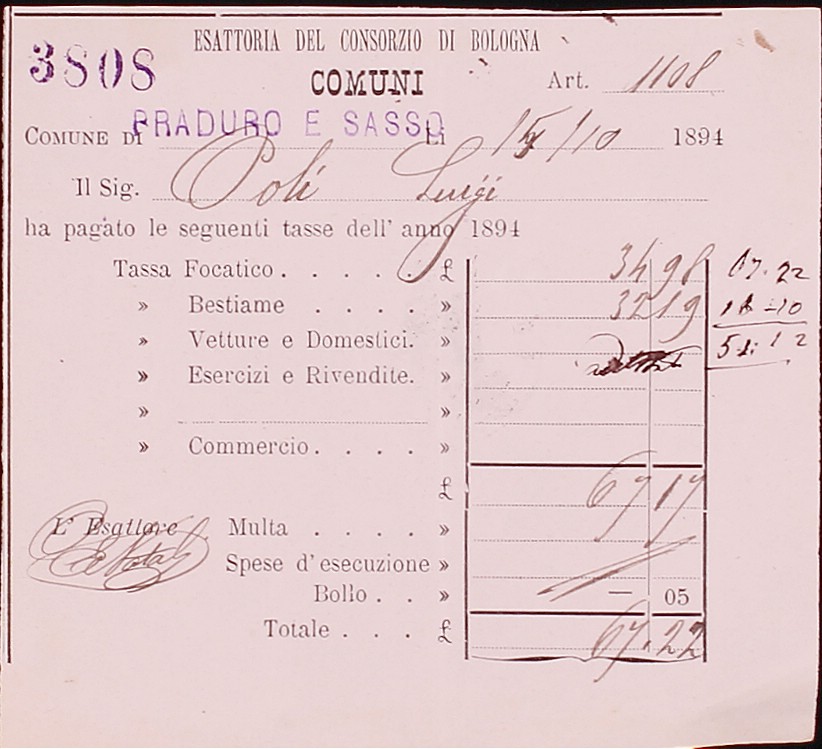 ESATTORIA DEL CONSORZIO DI BOLOGNA
3808 COMUNI Art. 1108
COMUNE DI PRADURO E SASSO Li 15/10 1894
Il Sig. Poli Luigi
ha pagato le seguenti tasse dell' anno 1894
Tassa Focatico . . . . . £ 34 98
» Bestiame . . . . » 32 19
» Vetture e Domestici. »
» Esercizi e Rivendite. »
» »
» Commercio . . . . »
£ 67 17
L' Esattore Multa . . . . »
Spese d' esecuzione »
Bollo . . » — 05
Totale . . . £ 67.22